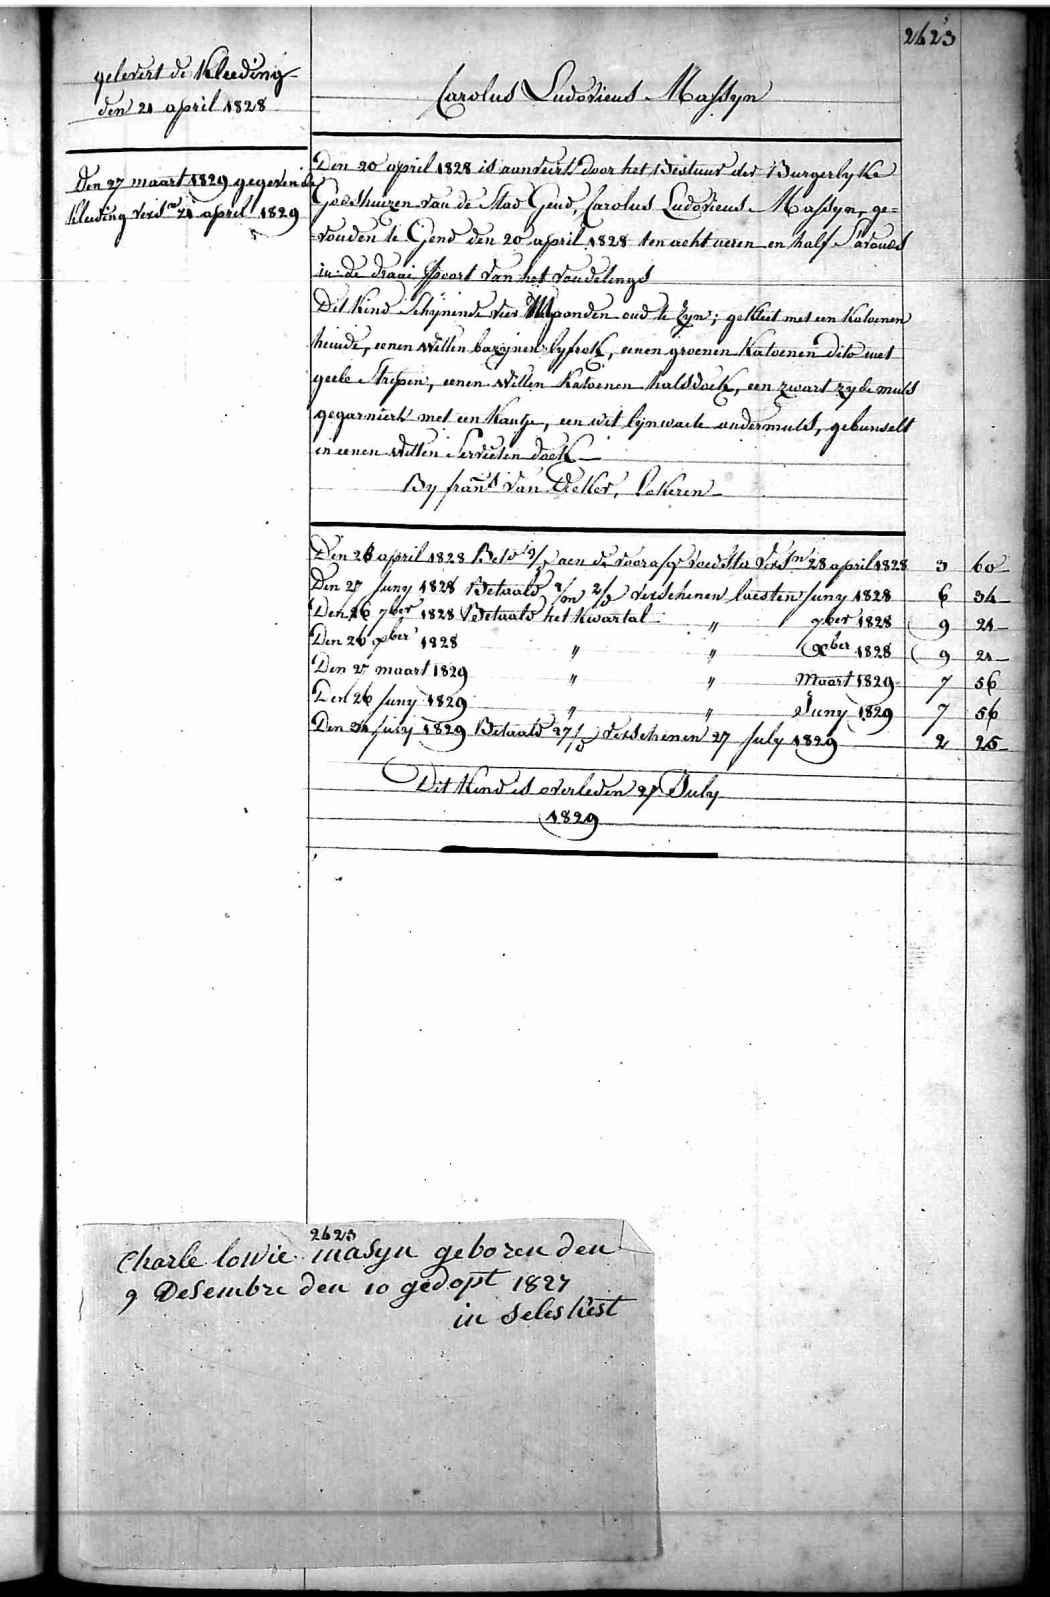 2623
gelevert de Kleeding
den 21 april 1828
Carolus Ludovicus Massyn
Den 27 maart 1829 gegeven de
Kleeding vers.en 21 april 1829
Den 20 april 1828 is aanveirt door het Bestuur der Burgerlyke
Godshuizen van de Stad Gend, Carolus Ludovicus Massyn, ge=
vonden te Gend den 20 april 1828 ten acht ueren en half S'avonds
in de draai Poort van het vondelings
Dit Kind Schynende vier Maanden oud te zyn; gekleit met een Katoenen
hemde, eenen witten bazynen lyfrok, eenen groenen Katoenen dito met
geele Strepen, eenen witten Katoenen halsdoek, een zwart zyde muts
gegarniert met een Kantje, een wit lynwaete ondermuts, gebunselt
in eenen witten Servieten doek
By frans van Lokeren
Den 28 april 1828 Bet.d aen de voedster vers.en 28 april 1828 3 60
Den 27 Juny 1828 Betaald 2/m 2/d verschenen laesten Juny 1828 6 34
Den 26 7ber 1828 Betaald het Kwartal " 7ber 1828 9 21
Den 26 xber 1828 " " xber 1828 9 21
Den 27 maart 1829 " " Maart 1829 7 56
Den 26 Juny 1829 " " Juny 1829 7 56
Den 31 July 1829 Betaald 27/d verschenen 27 July 1829 2 25
Dit Kind is overleden 27 July
1829
2623
Charle lowie masyn geboren den
9 Desembre den 10 gedopt 1827
in seleskest